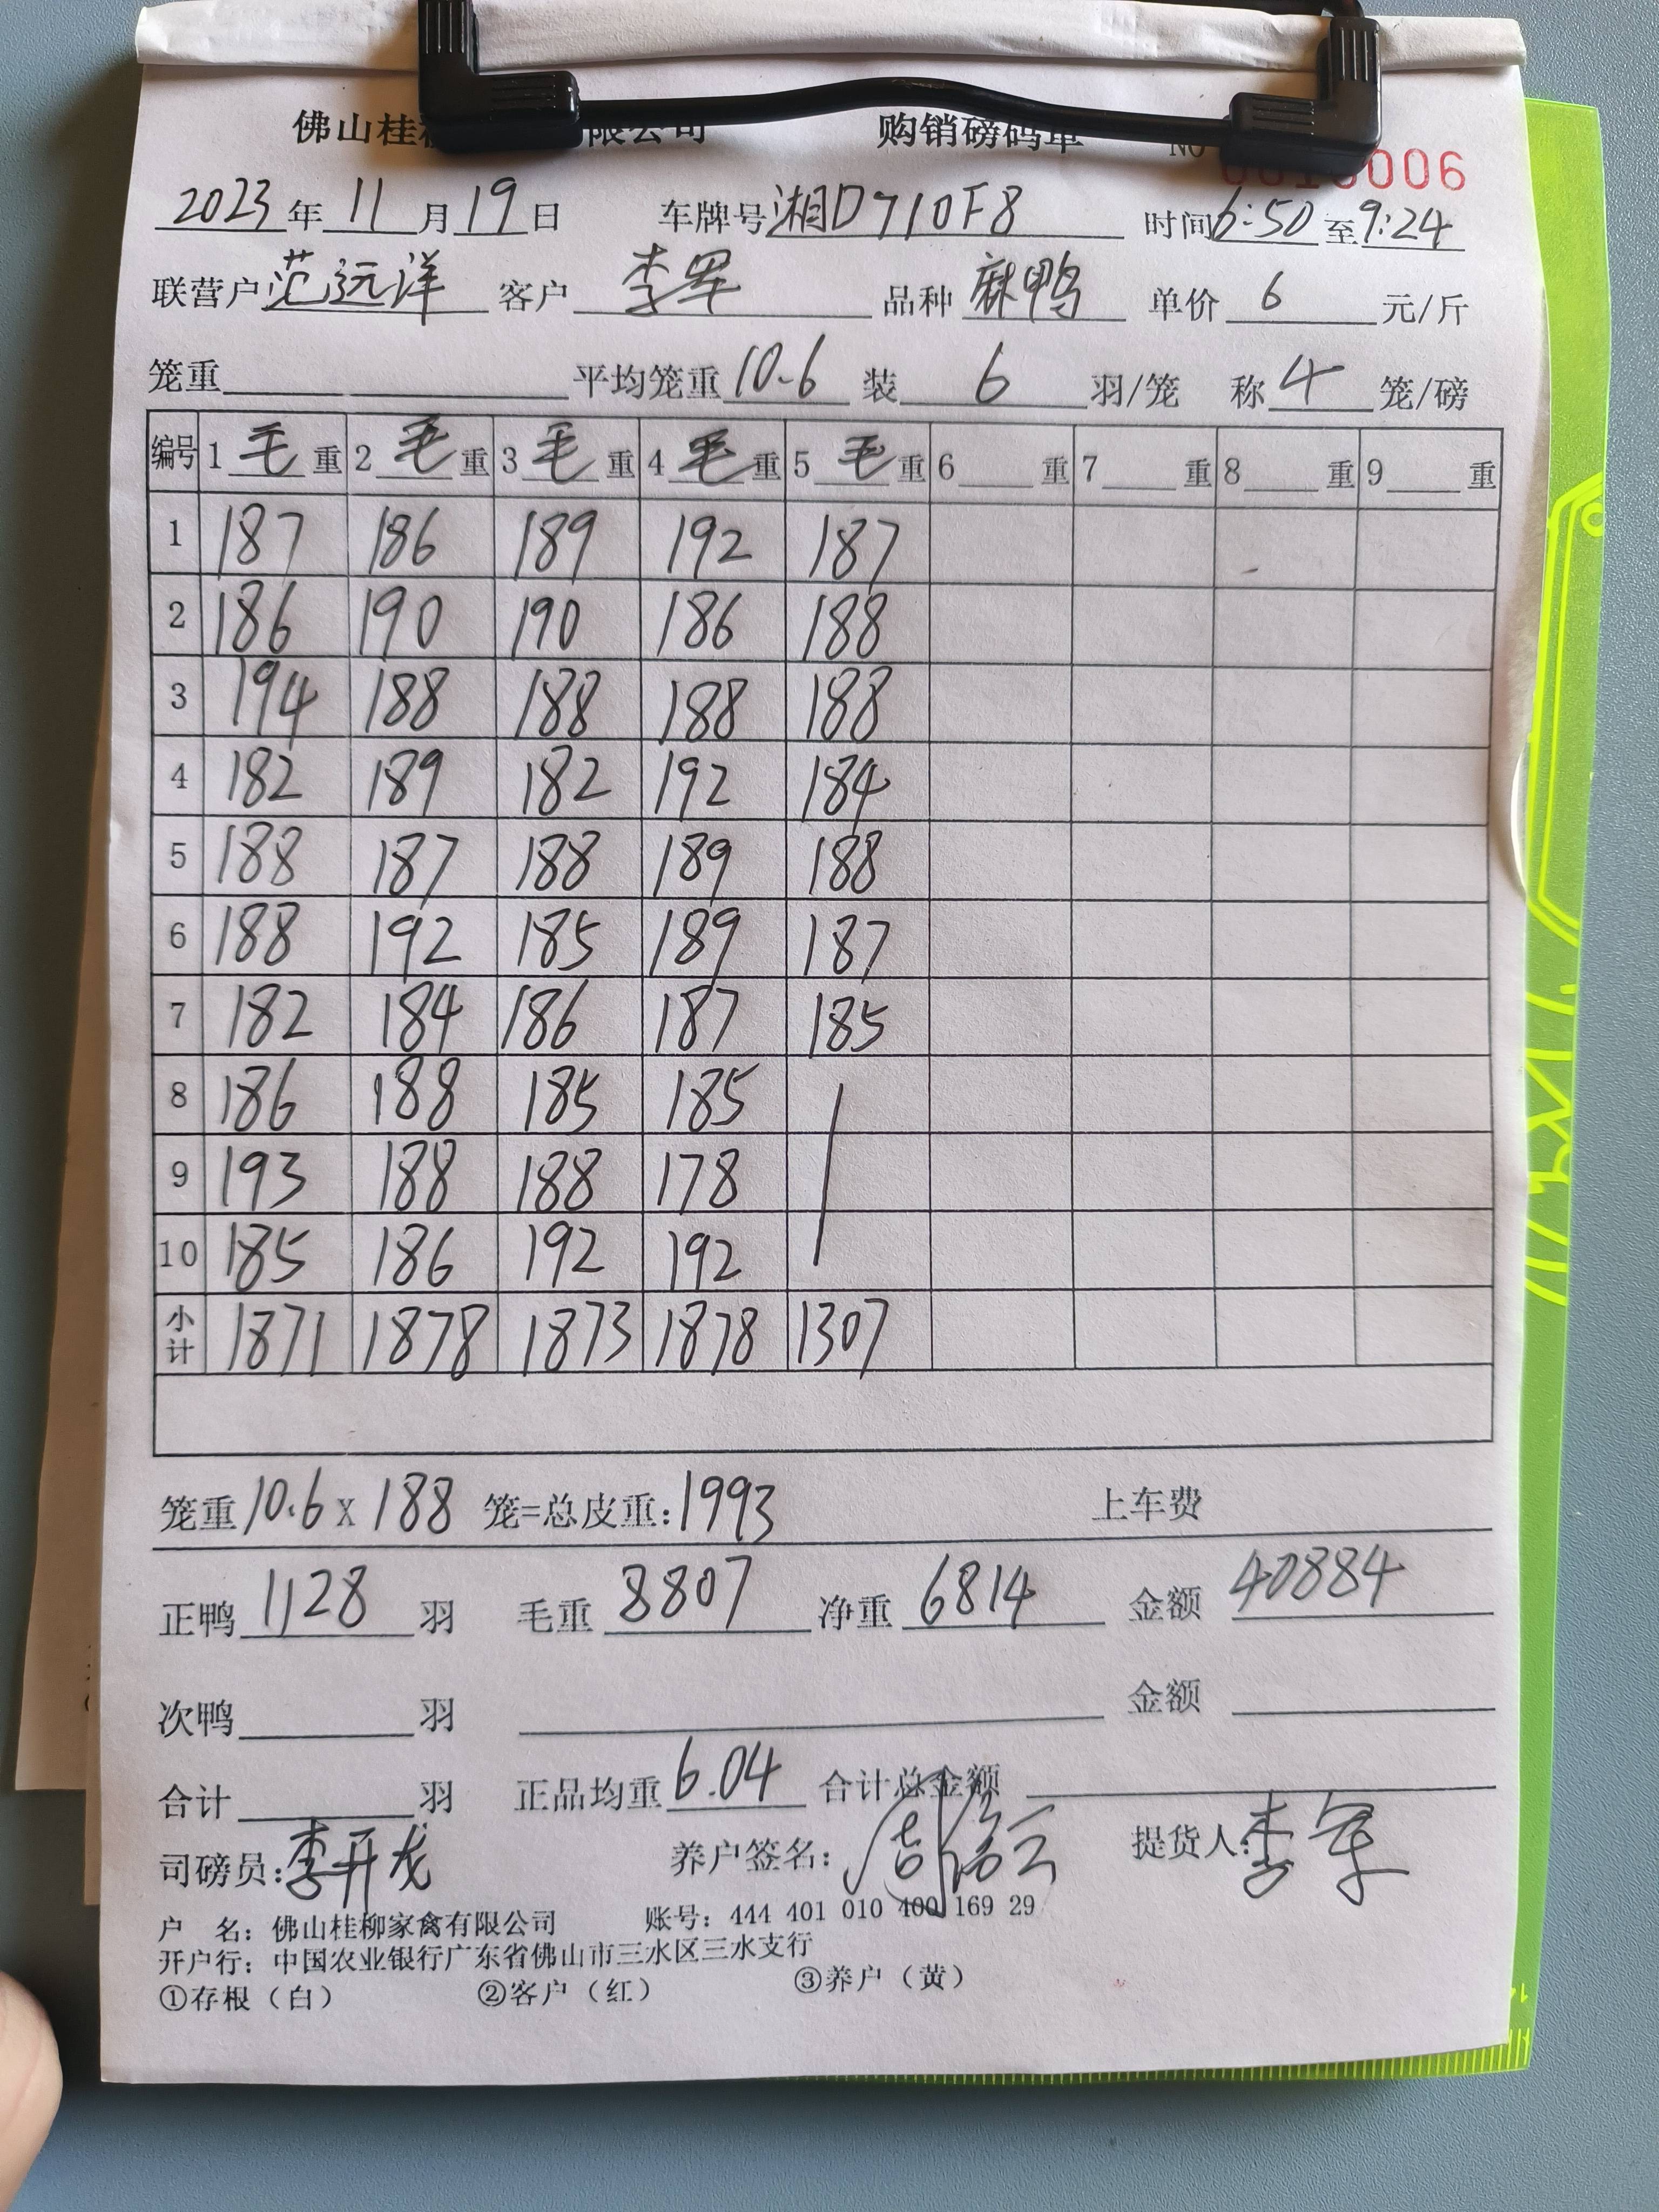 佛山桂 限公司 购销磅码单 NO 006
2023年11月19日 车牌号湘D710F8 时间6:50至9:24
联营户范远洋 客户李军 品种麻鸭 单价6元/斤
笼重 平均笼重10.6 装6羽/笼 称4笼/磅
编号 1毛重 2毛重 3毛重 4毛重 5毛重 6重 7重 8重 9重
1 187 186 189 192 187
2 186 190 190 186 188
3 194 188 188 188 188
4 182 189 182 192 184
5 188 187 188 189 188
6 188 192 185 189 187
7 182 184 186 187 185
8 186 188 185 185
9 193 188 188 178
10 185 186 192 192
小计 1871 1878 1873 1878 1307
笼重10.6X188 笼=总皮重:1993 上车费
正鸭1128羽 毛重8807 净重6814 金额40884
次鸭 羽 金额
合计 羽 正品均重6.04 合计总金额
司磅员:李开龙 养户签名: 提货人:李军
户 名: 佛山桂柳家禽有限公司 账号: 444 401 010 400 169 29
开户行: 中国农业银行广东省佛山市三水区三水支行
①存根（白） ②客户（红） ③养户（黄）